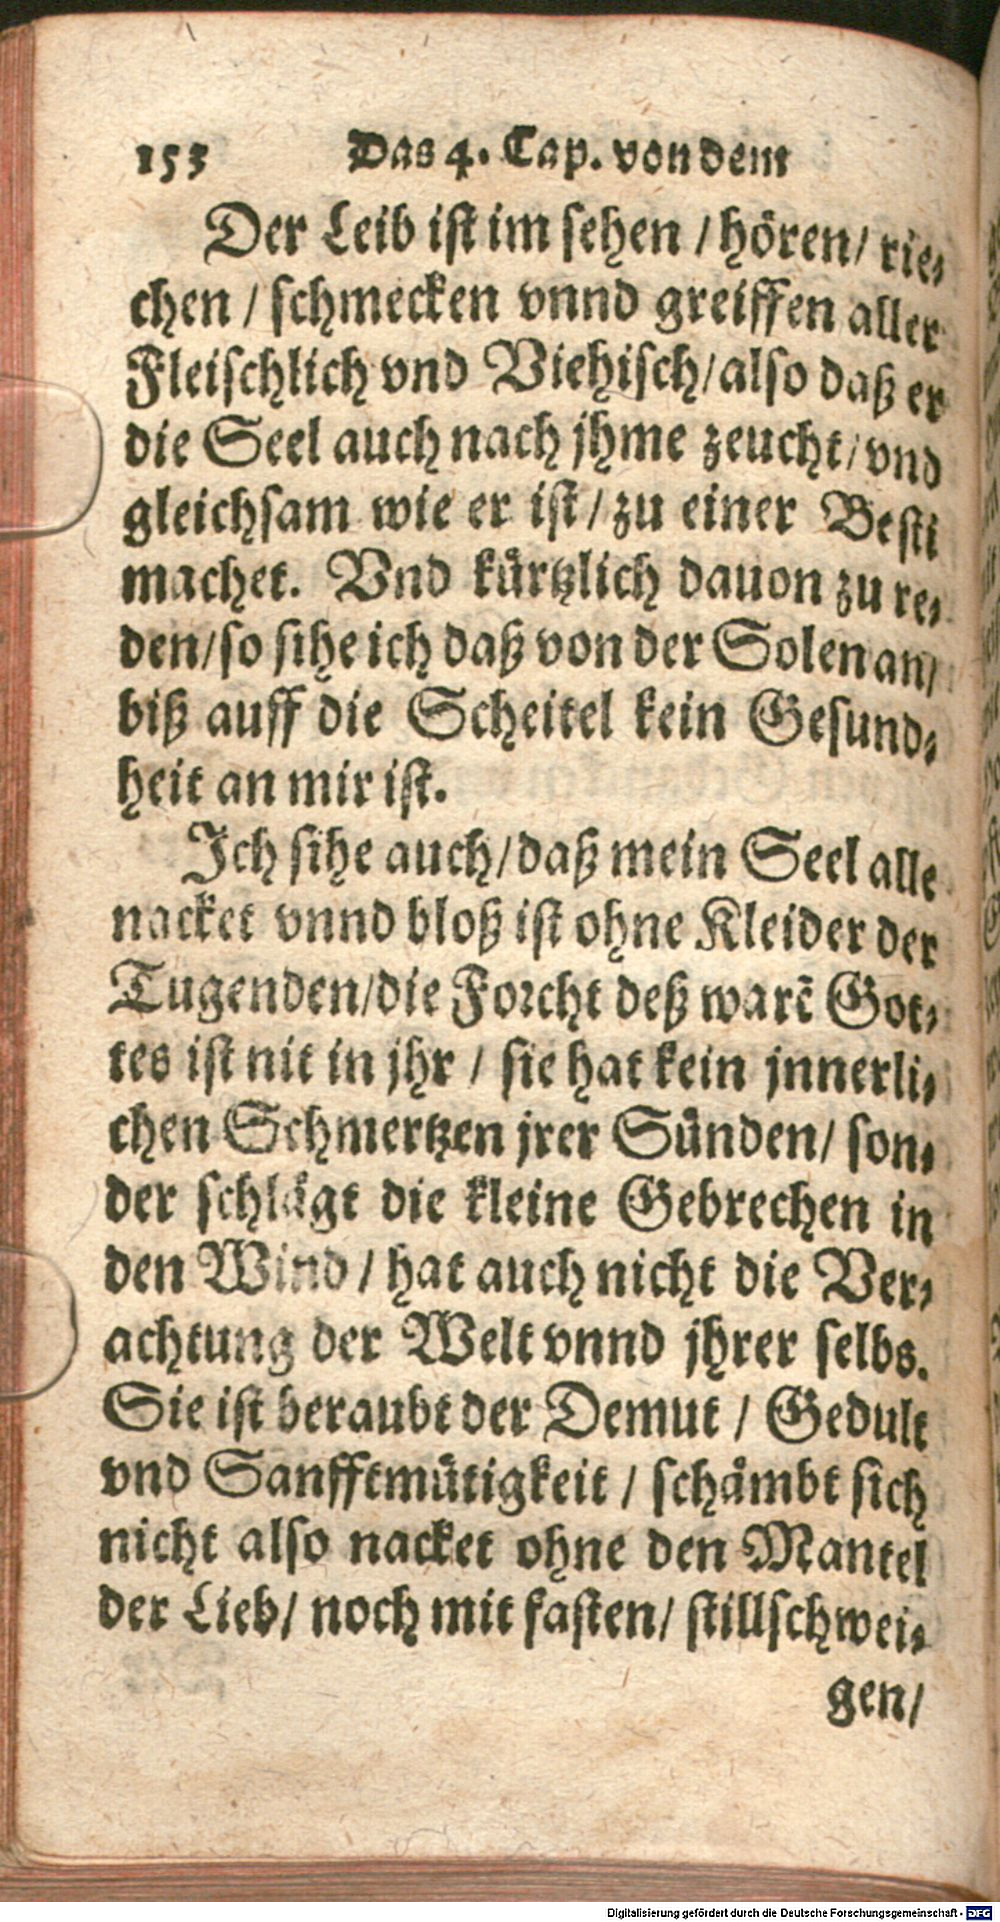 153 Das 4. Cap. von dem
Der Leib ist im sehen / hören / rie⸗
chen / schmecken vnnd greiffen aller
Fleischlich vnd Viehisch / also daß er
die Seel auch nach jhme zeucht / vnd
gleichsam wie er ist / zu einer Besti
machet. Vnd kürtzlich dauon zu re⸗
den / so sihe ich daß von der Solen an /
biß auff die Scheitel kein Gesund⸗
heit an mir ist.
Ich sihe auch / daß mein Seel alle
nacket vnnd bloß ist ohne Kleider der
Tugenden / die Forcht deß warẽ Got⸗
tes ist nit in jhr / sie hat kein jnnerli⸗
chen Schmertzen jrer Sünden / son⸗
der schlägt die kleine Gebrechen in
den Wind / hat auch nicht die Ver⸗
achtung der Welt vnnd jhrer selbs.
Sie ist beraubt der Demut / Gedult
vnd Sanfftmütigkeit / schämbt sich
nicht also nacket ohne den Mantel
der Lieb / noch mit fasten / stillschwei⸗
gen /
Digitalisierung gefördert durch die Deutsche Forschungsgemeinschaft - DFG